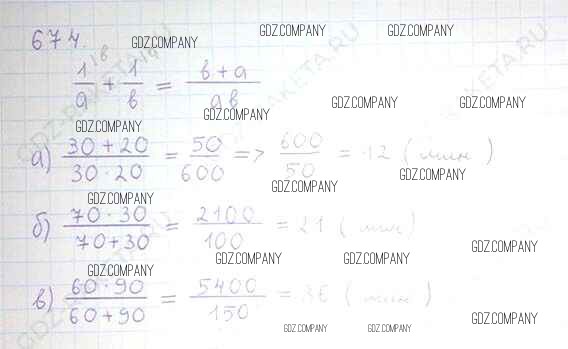 674.
GDZ.COMPANY GDZ.COMPANY GDZ.COMPANY
1/a + 1/b = (b + a)/(ab)
GDZ.COMPANY GDZ.COMPANY GDZ.COMPANY GDZ.COMPANY
а) (30 + 20)/(30 · 20) = 50/600 => 600/50 = 12 (мин)
GDZ.COMPANY GDZ.COMPANY GDZ.COMPANY
б) (70 · 30)/(70 + 30) = 2100/100 = 21 (мин)
GDZ.COMPANY GDZ.COMPANY GDZ.COMPANY GDZ.COMPANY
в) (60 · 90)/(60 + 90) = 5400/150 = 36 (мин)
GDZ.COMPANY GDZ.COMPANY GDZ.COMPANY